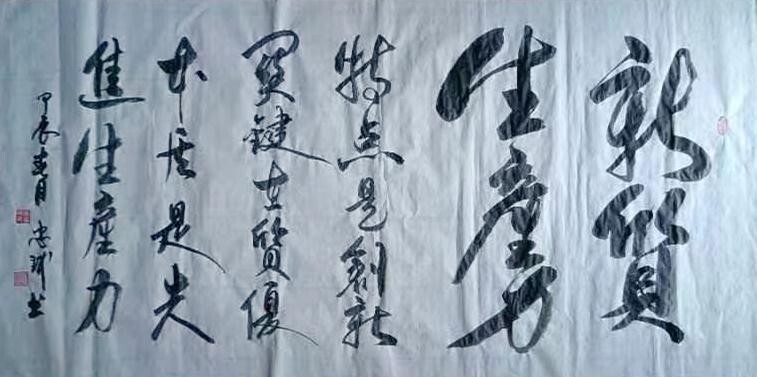 新質
生產力
特点是創新
関鍵在質優
本质是先
進生產力
甲辰春月 忠书